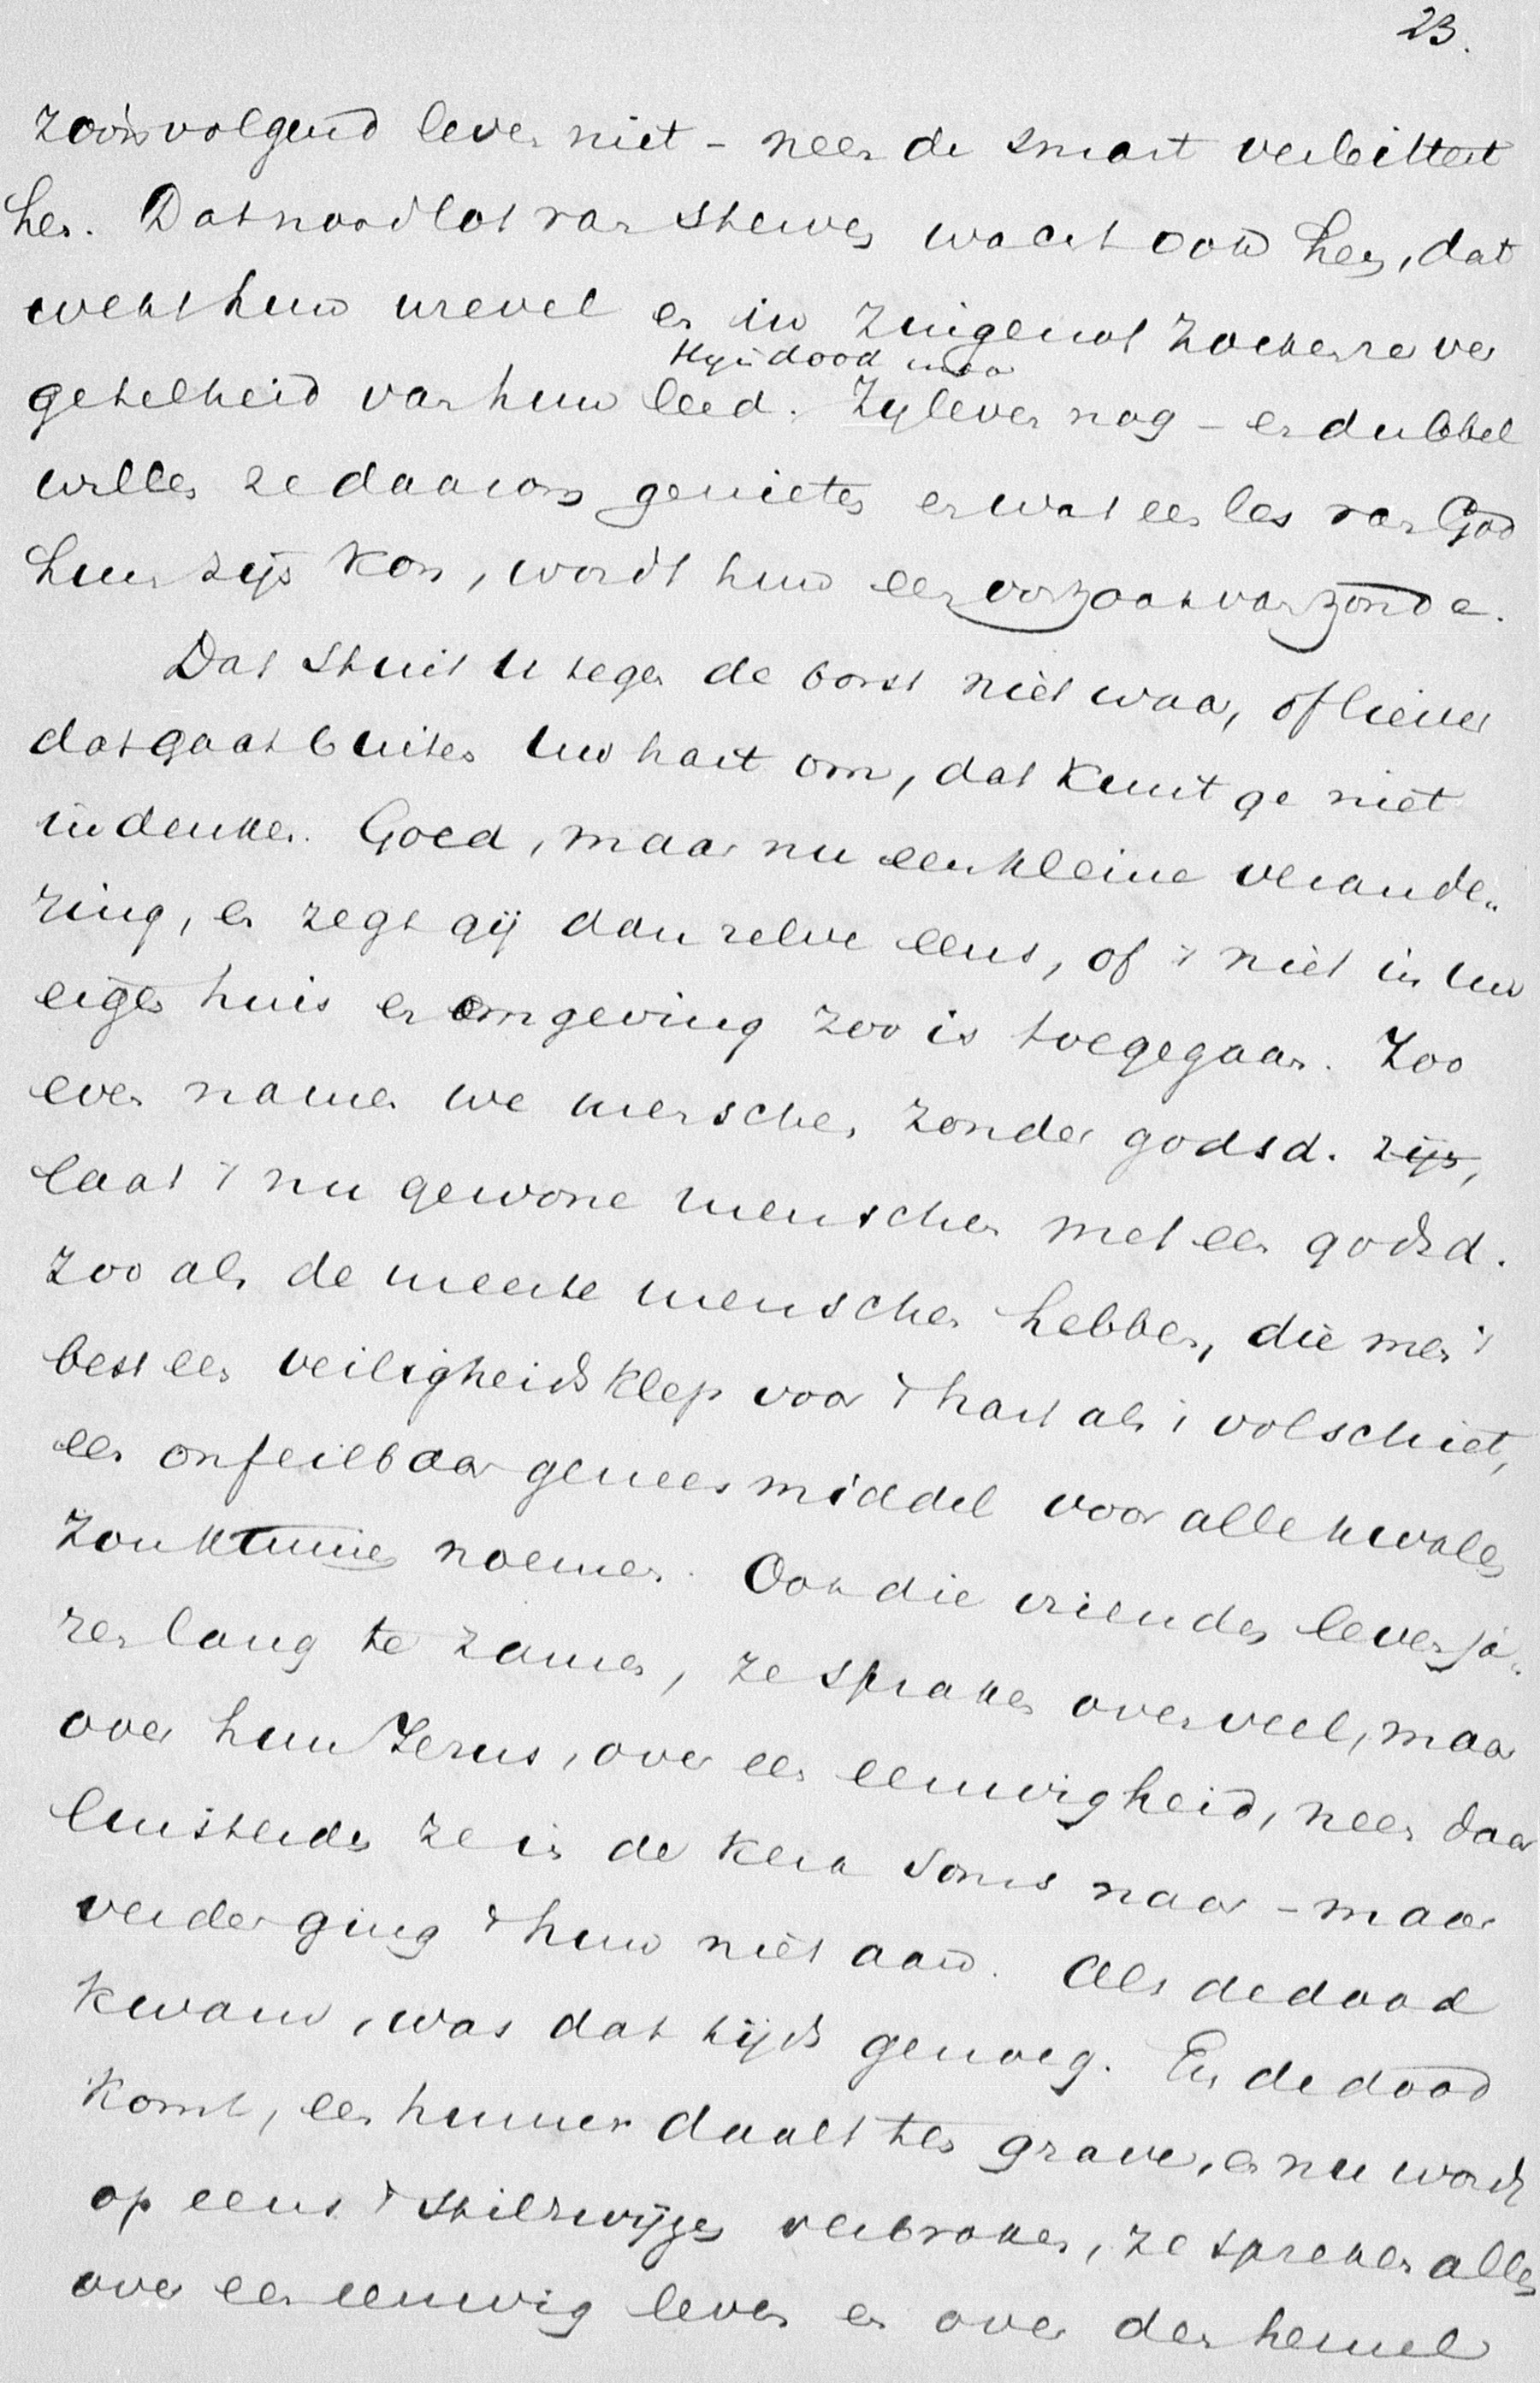 23.
zoo'n volgend leven niet - neen de smart verbittert
hen. Dat noodlot van sterven wacht ook hen, dat
wekt hun wrevel en in zingenot zoeken ze ver
Hij is dood maar
getelheid van hun leed. Zij leven nog - en dubbel
willen ze daarom genieten en wat een les van God
hun zijn kon, wordt hun een oorzaak van zonde.
Dat stuit u tegen de borst niet waar, of liever
dat gaat buiten uw hart om, dat kunt ge niet
indenken. Goed, maar nu een kleine verande„
ring, en zegt gij dan zelve eens, of 't niet in uw
eigen huis en omgeving zoo is toegegaan. Zoo
even namen we menschen zonder godsd. zijn,
laat 't nu gewone menschen met een godsd.
zoo als de meeste menschen hebben, die men 't
best een veiligheidsklep voor 't hart als 't volschiet,
een onfeilbaar geneesmiddel voor alle kwalen
zou kunnen noemen. Ook die vrienden leven ja„
ren lang te zamen, ze spraken over veel, maar
over hun Jezus, over een eeuwigheid, neen daar
luisterden ze in de kerk soms naar - maar
verder ging 't hun niet aan. Als de dood
kwam, was dat tijds genoeg. En de dood
komt, een hunner daalt ten grave, en nu wordt
op eens 't stilzwijgen verbroken, ze spreken allen
over een eeuwig leven en over den hemel